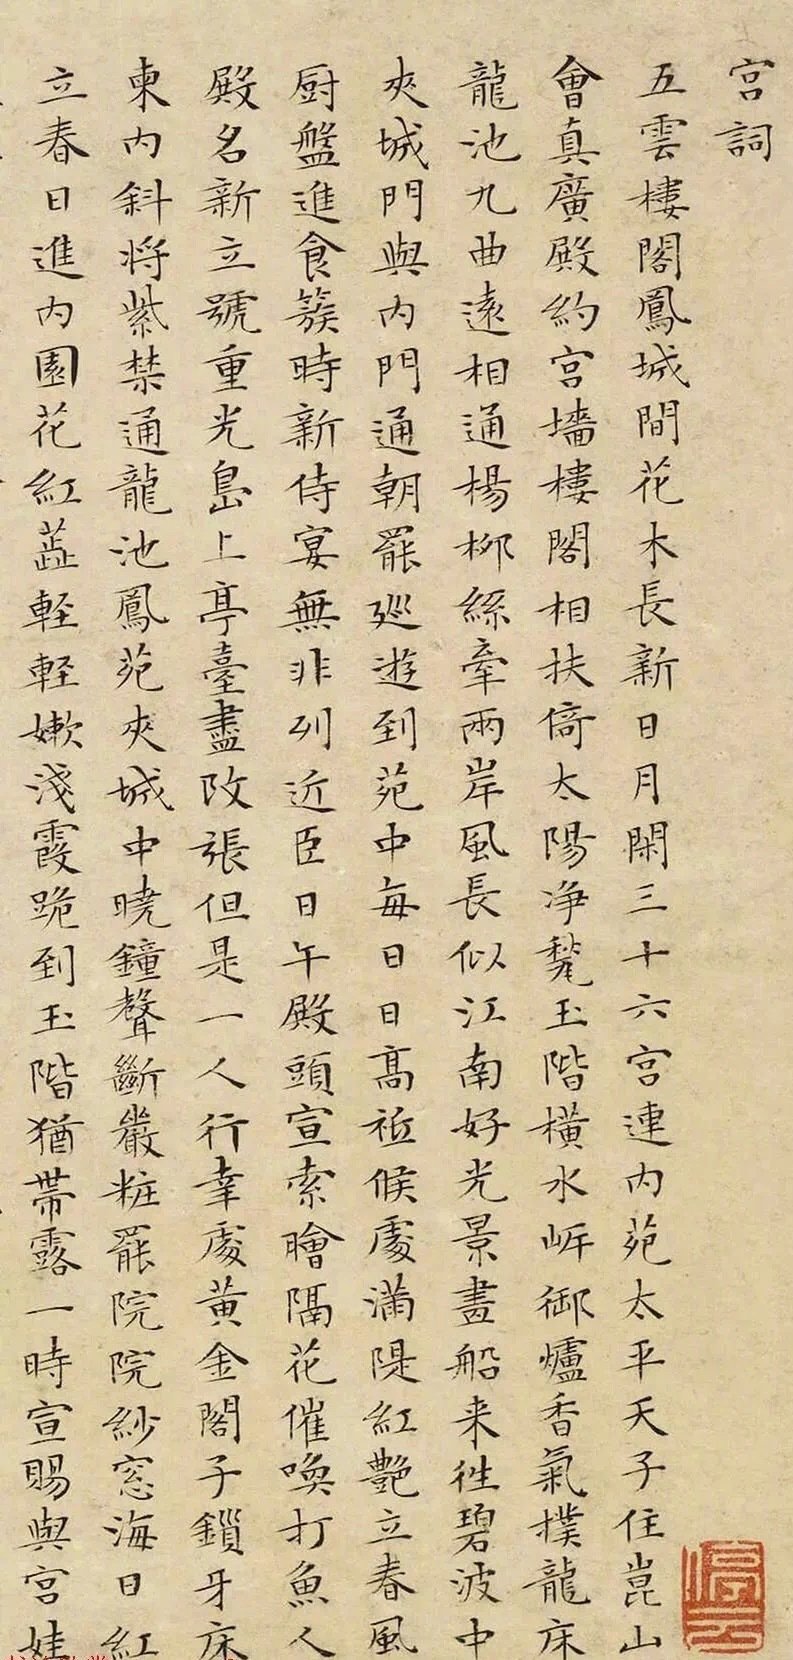 宮詞
五雲樓閣鳳城間花木長新日月閑三十六宮連内苑太平天子住崑山
會真廣殿約宮墻樓閣相扶倚太陽净甃玉階橫水岸御爐香氣撲龍床
龍池九曲遠相通楊柳絲牽兩岸風長似江南好光景畫船来往碧波中
夾城門與内門通朝罷巡遊到苑中每日日高祗候處滿隄紅艷立春風
厨盤進食簇時新侍宴無非列近臣日午殿頭宣索膾隔花催喚打魚人
殿名新立號重光島上亭臺盡改張但是一人行幸處黃金閣子鎖牙床
東内斜将紫禁通龍池鳳苑夾城中曉鐘聲斷嚴粧罷院院紗窓海日紅
立春日進内園花紅蕋軽軽嫩淺霞跪到玉階猶帶露一時宣賜與宮娃
停云